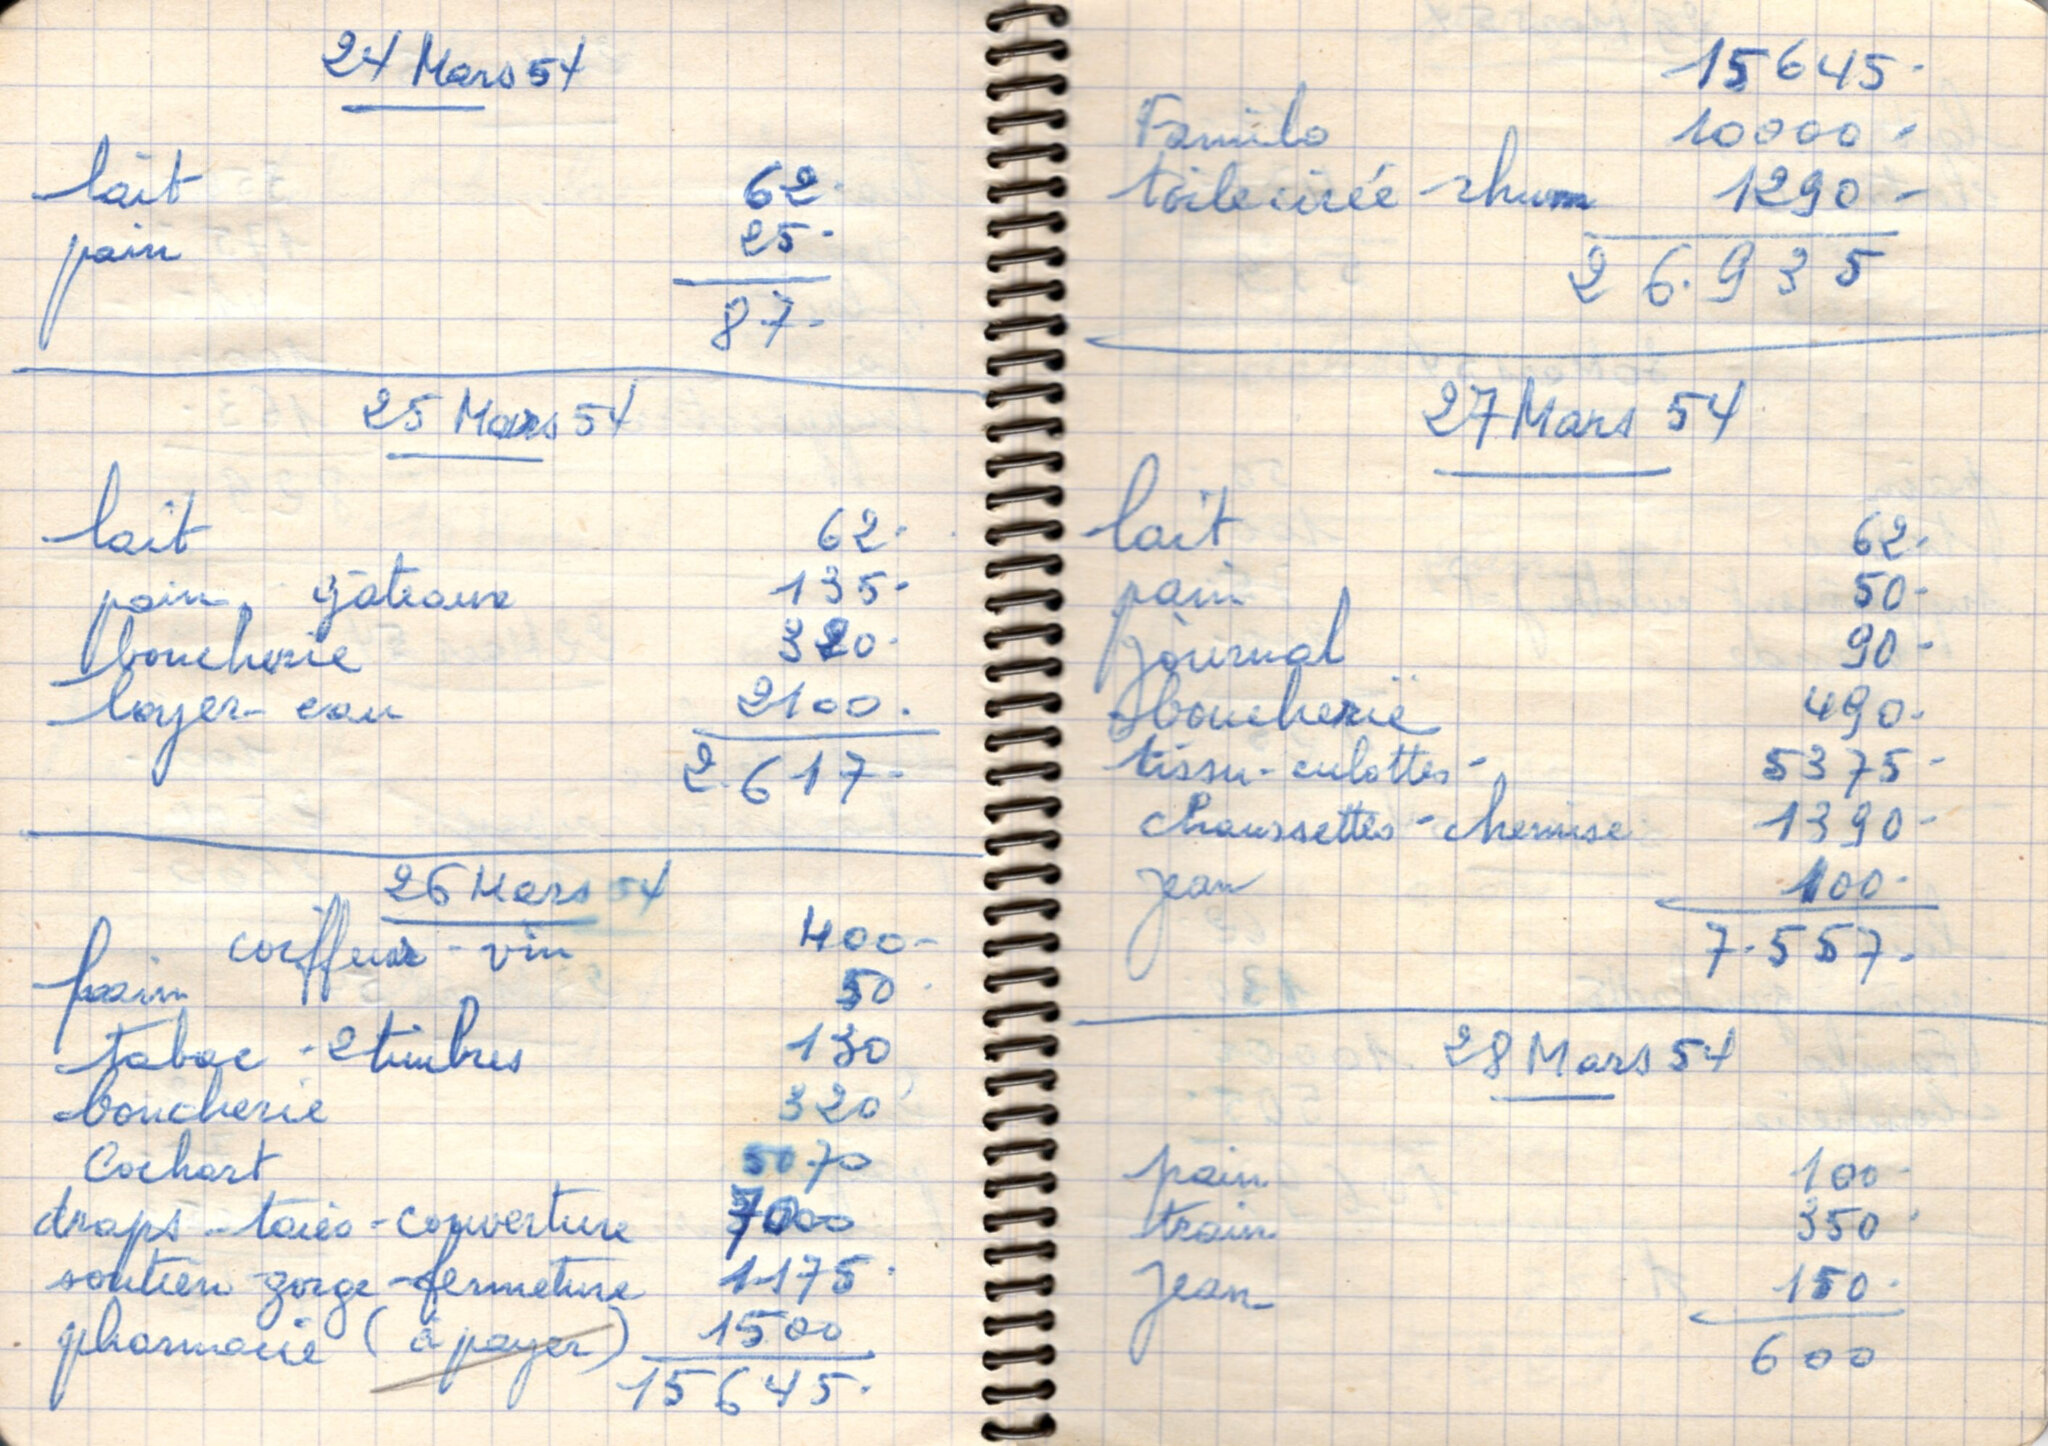 24 Mars 54
lait 62.
pain 25.
87.
25 Mars 54
lait 62.
pain, gâteaux 135.
boucherie 320.
loyer - eau 2100.
2.617.
26 Mars 54
coiffeur - vin 400-
pain 50.
tabac - 2 timbres 130
boucherie 320
Cochart 5070
draps - taies - couverture 7000
soutien gorge - fermeture 1175.
pharmacie (à payer) 1500
15645.
15645.
Familo 10000.
toile cirée - rhum 1290-
26.935
27 Mars 54
lait 62.
pain 50.
journal 90-
boucherie 490.
tissu - culottes - 5375-
chaussettes - chemise 1390-
Jean 100.
7.557.
28 Mars 54
pain 100-
train 350.
Jean 150.
600